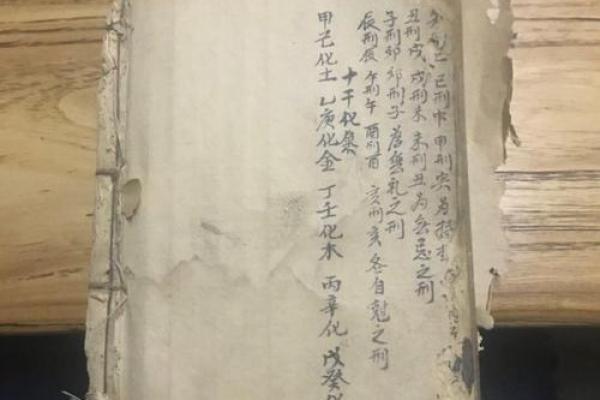 刑巳 巳刑申 申刑寅 为持
丑刑戌 戌刑未 未刑丑 为无忌之刑
子刑卯 卯刑子 为無礼之刑
辰刑辰 午刑午 酉刑酉 亥刑亥 各自尅之刑
十干化集
甲己化土 乙庚化金 丁壬化木 丙辛化 戊癸化